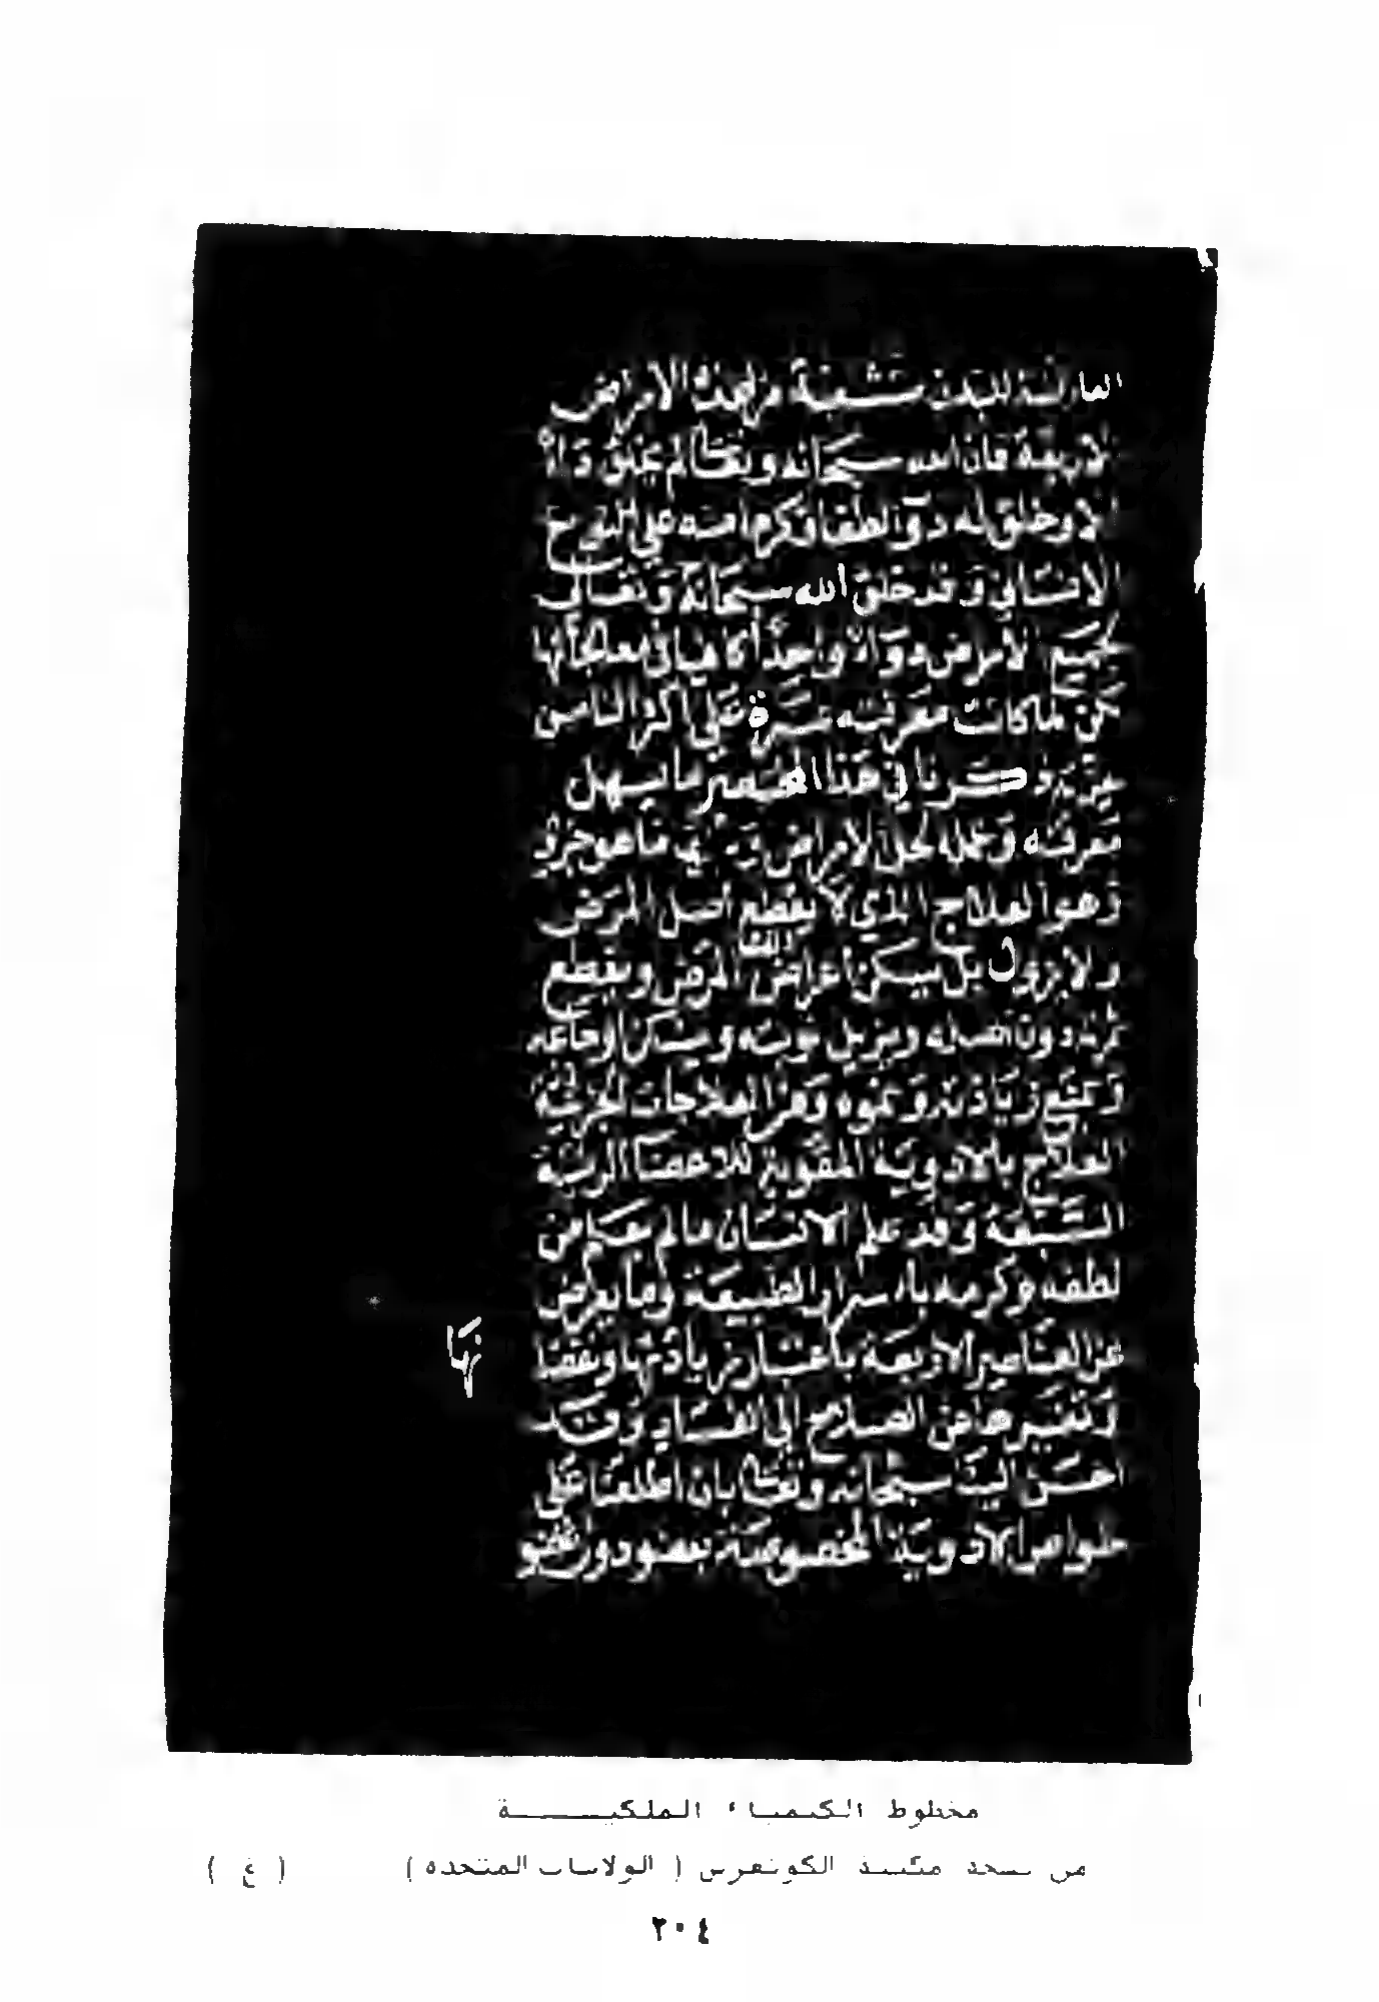 العارضة للبدن متشعبة من هذه الامراض
الاربعة فان الله سبحانه وتعالى لم يخلق دآءً
الا وخلق له دوآ لطفا وكرما منه على النوع
الانساني وقد خلق الله سبحانه وتعالى
لجميع الامراض دوآء واحدًا كافيا في معالجاتها
لكن لما كانت معرفته عسرة على اكثر الناس
ذكرنا في هذا المختصر ما يسهل
معرفته وعمله لجل الامراض ما هو جزؤى
وهو العلاج الذي لا يقطع اصل المرض
ولا يزول بل يسكن اعراض المرض ويقطع
دون اصله ويزيل نوبته ويسكن اوجاعه
ويمنع زيادته ونموه ومن العلاجات الجزئية
العلاج بالادوية المقوية للاعضا الرئيسة
السبعة وقد علم الانسان مالم يعلم من
لطفه وكرمه باسرار الطبيعة وما يعرض
من العناصر الاربعة باعتبار زيادتها ونقصا
نها
وتغيرها من الصلاح الى الفساد وقد
احسن الينا سبحانه وتعالى بان اطلعنا على
خواص الادوية المخصوصة بعضو دون عضو
مخطوط الكيمياء الملكيــــــة
من نسخة مكتبة الكونغرس ( الولايات المتحدة ) ( غ )
٢٠٤